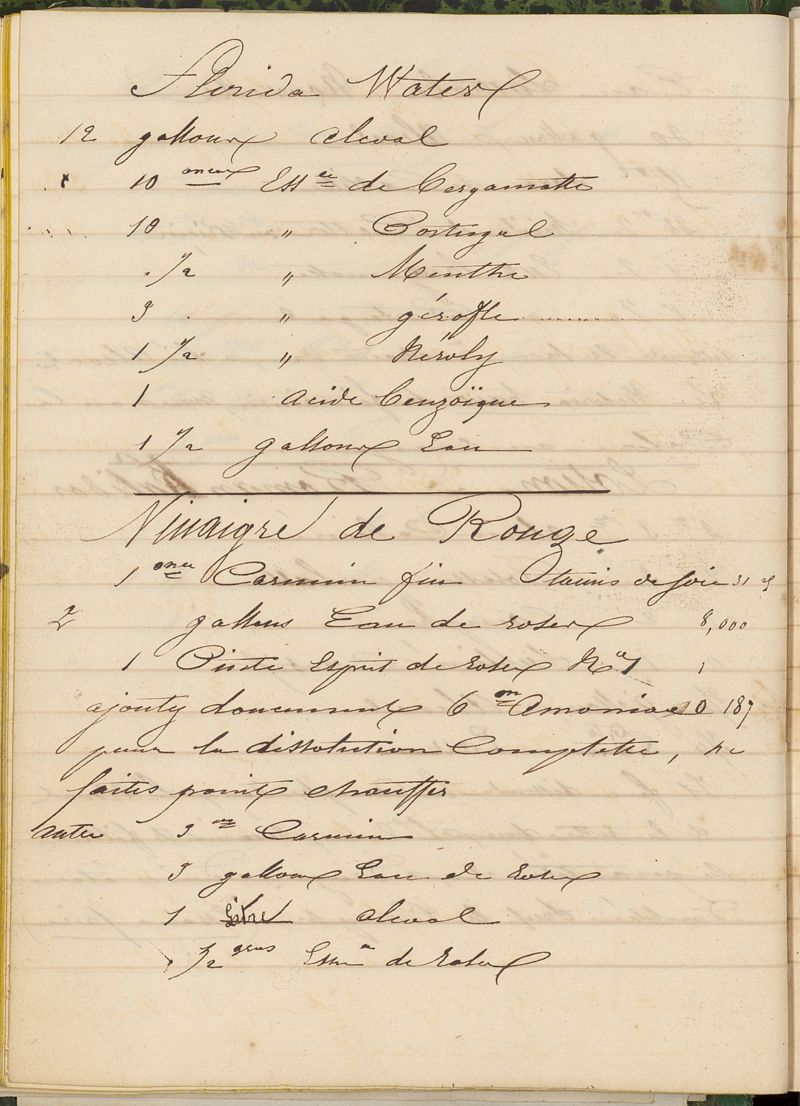 Florida Water
12 gallons alcool
10 onces Essce de Bergamotte
10 " Portugal
1/2 " Menthe
3 " gérofle
1 1/2 " Néroly
1 acide benzoïque
1 1/2 gallons Eau
Vinaigre de Rouge
1 once Carmin fin tamis de soie 31
2 gallons Eau de roses 8,000
1 Pinte Esprit de roses No 1 1
ajoutez doucement 6 on Amoniac 0 187
pour la dissolution Complette, ne
faites point chauffer
autre 3 on Carmin
3 gallons Eau de roses
1 Litre alcool
1/2 gros Essce de roses